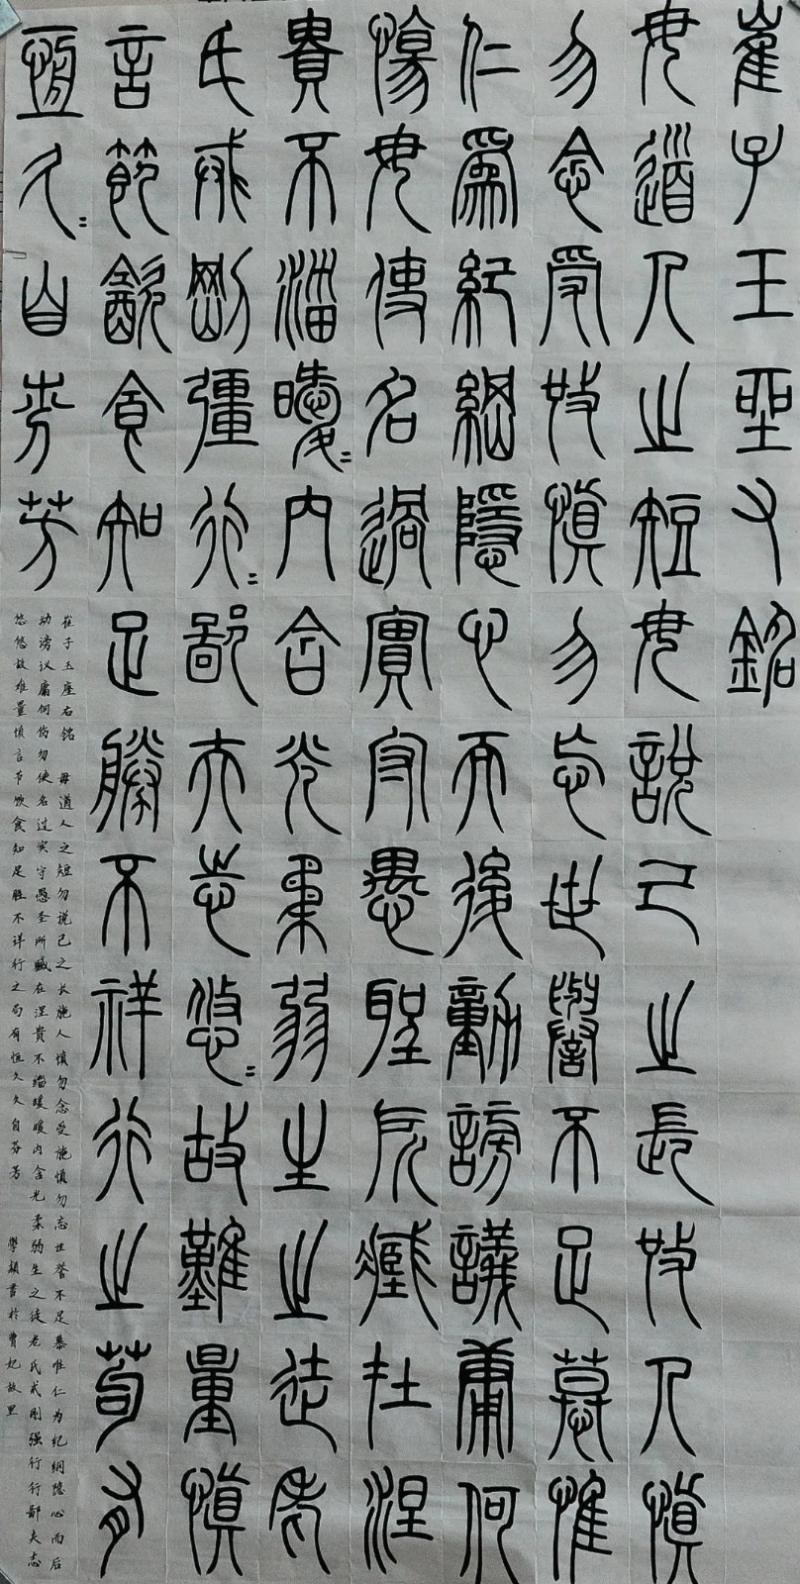 崔子玉坐又銘
毋道人之短毋說己之長施人慎
勿念受施慎勿忘世譽不足慕惟
仁為紀綱隱心而後動謗議庸何
傷毋使名過實守愚聖所臧在涅
貴不淄曖〻內含光柔弱生之徒老
氏戒剛彊行〻鄙夫志悠〻故難量慎
言節飲食知足勝不祥行之苟有
恆久〻自芬芳
崔子玉座右铭 毋道人之短勿说己之长施人慎勿念受施慎勿忘世誉不足慕惟仁为纪纲隐心而后
动谤议庸何伤勿使名过实守愚圣所臧在涅贵不缁暧暧内含光柔弱生之徒老氏戒刚强行行鄙夫志
悠悠故难量慎言节饮食知足胜不详行之苟有恒久久自芬芳 學穎書於費妃故里